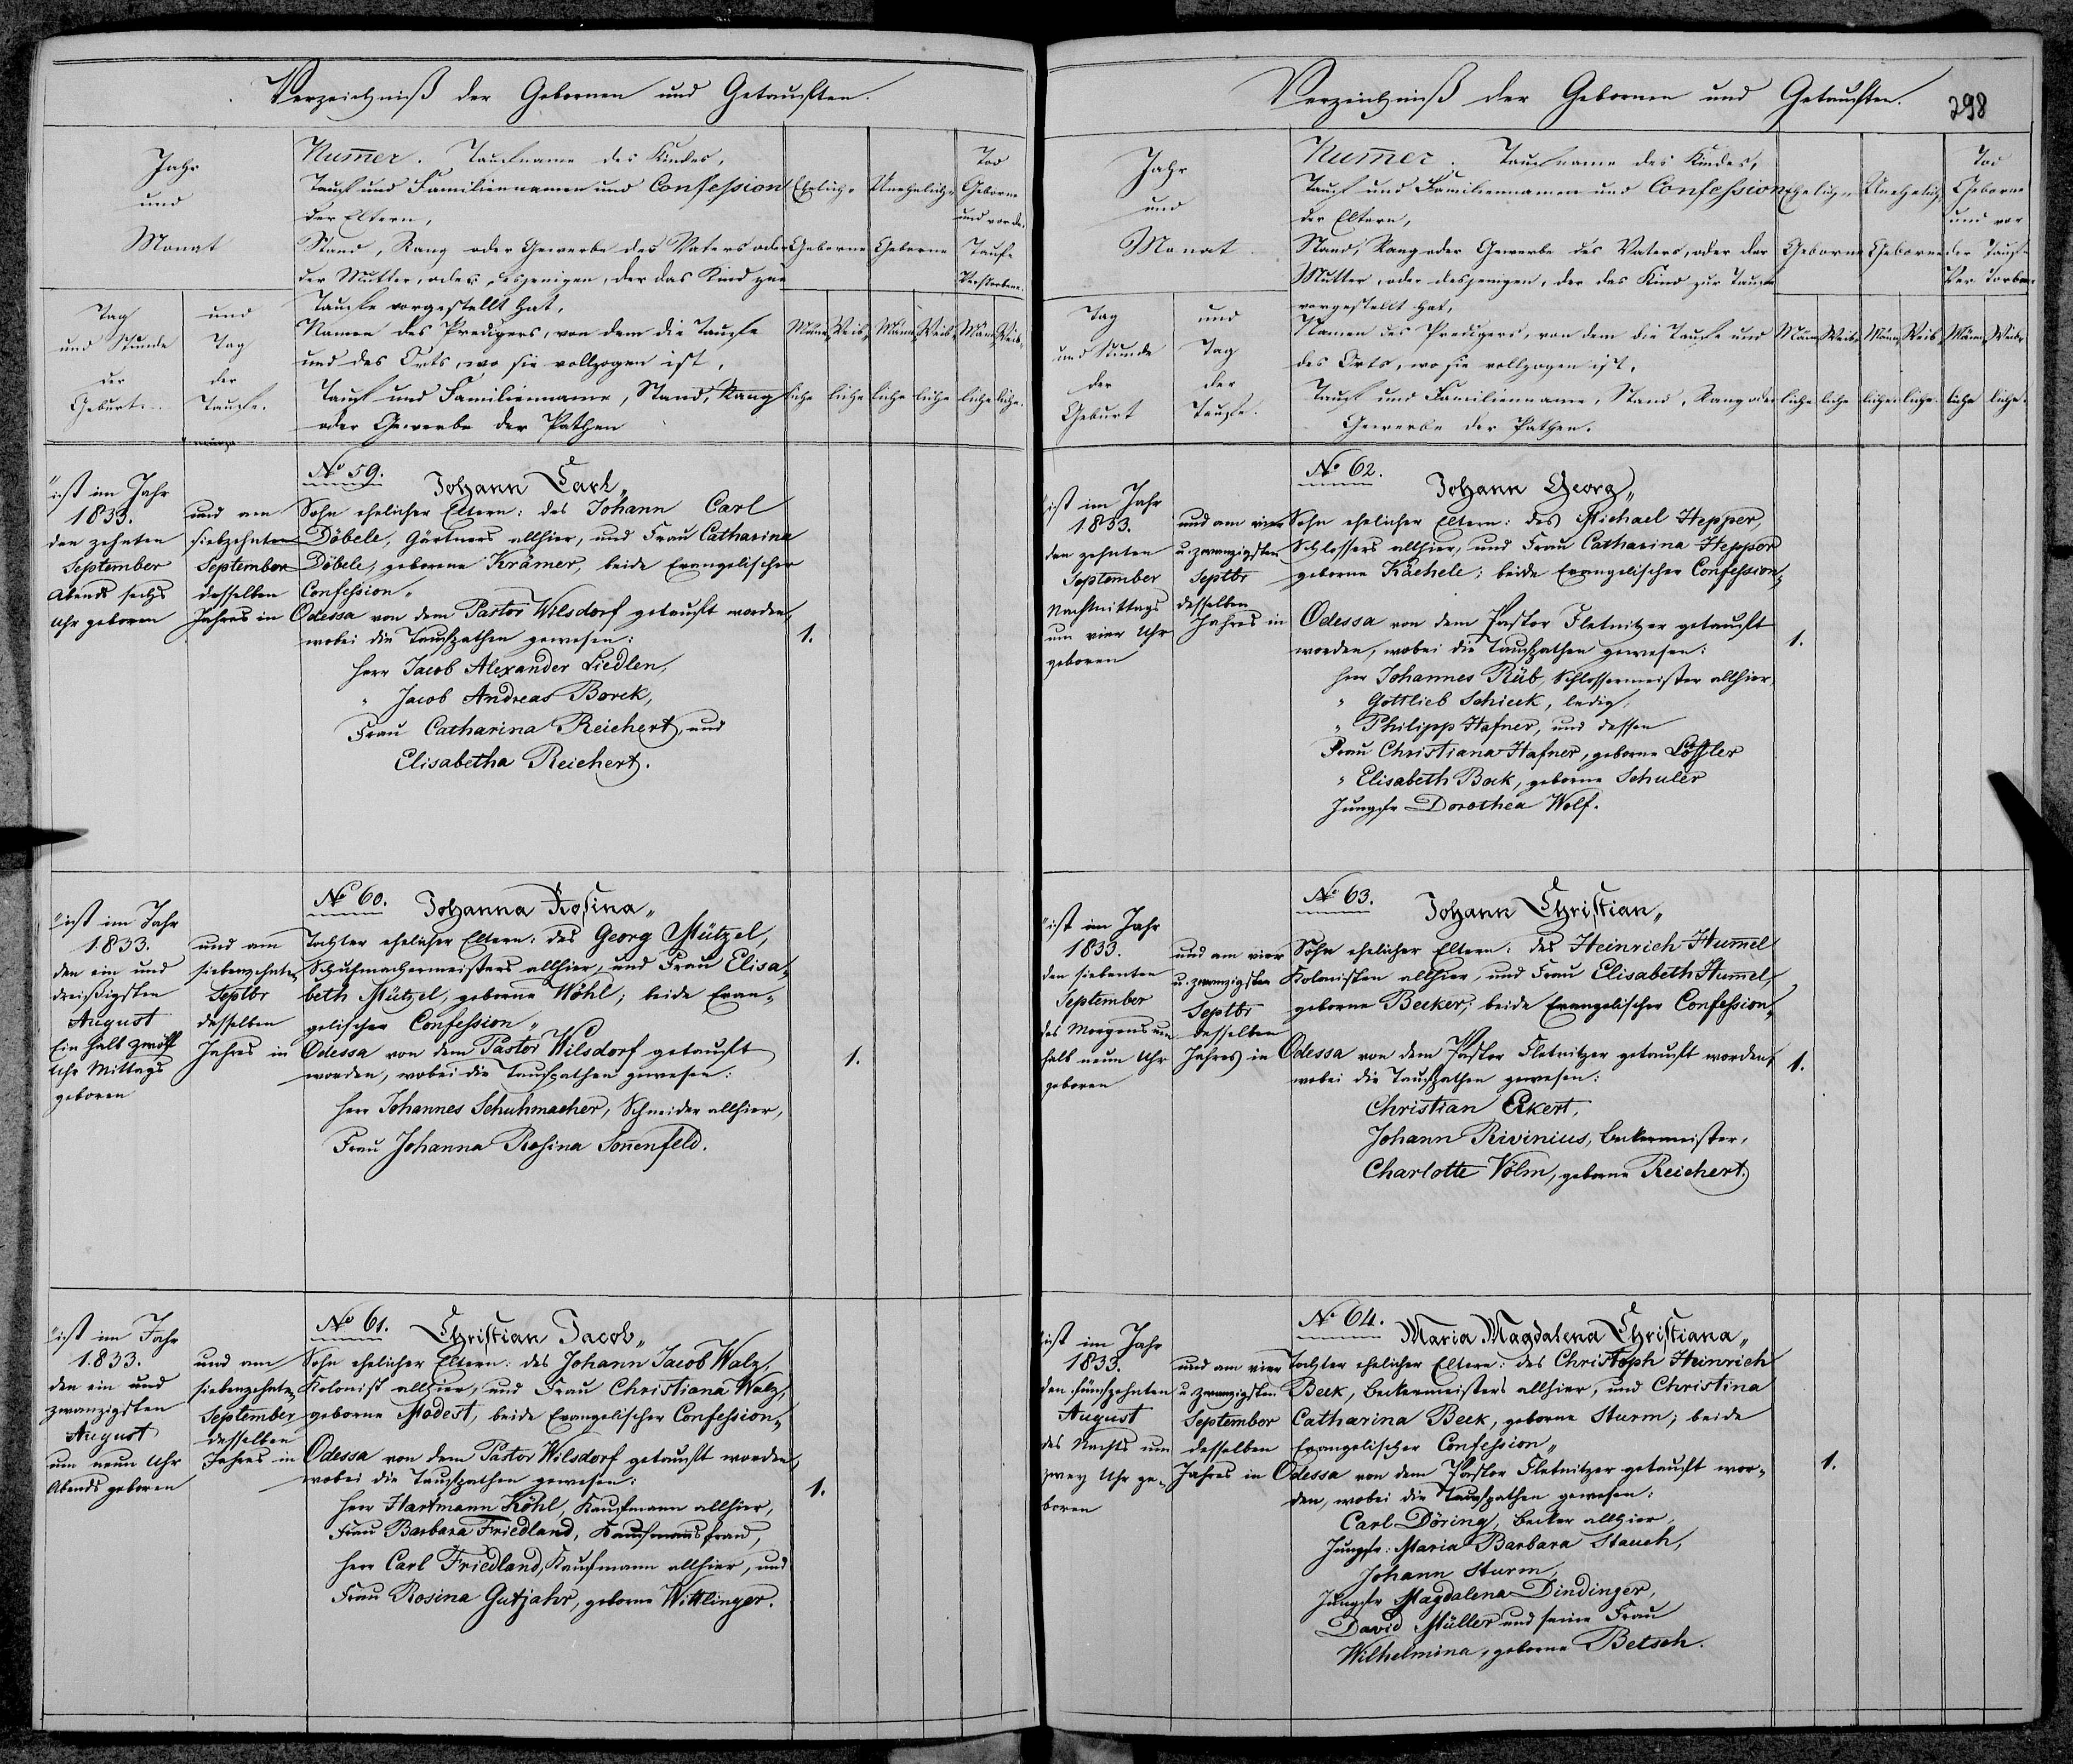 Verzeichniß der Gebornen und Getauften.
Jahr
und
Monat
Tag
und Stunde
der
Geburt.
und
Tag
der
Taufe.
Numer. Taufname des Kindes,
Tauf und Familiennamen und Confession
der Eltern,
Stand, Rang oder Gewerbe des Vaters oder
der Mutter, oder desjenigen, der das Kind zur
Taufe vorgestellt hat,
Namen des Predigers, von dem die Taufe
und des Orts, wo sie vollzogen ist,
Tauf und Familienname, Stand, Rang
oder Gewerbe der Pathen
Ehelich
Geborne
Unehelich
Geborne
Tod
Geborne
und vor der
Taufe
Verstorbene.
Männ Weib Männ Weib Männ Weib
liche liche liche liche liche liche
ist im Jahr
1833.
den zehnten
September
Abends sechs
Uhr geboren
und am
siebzehnten
September
desselben
Jahres in
No 59. Johann Carl
Sohn ehelicher Eltern: des Johann Carl
Döbele, Gärtners allhier, und Frau Catharina
Döbele, geborene Krämer, beide Evangelischer
Confession
Odessa von dem Pastor Wilsdorf getauft worden,
wobei die Taufpathen gewesen:
Herr Jacob Alexander Liedlen,
" Jacob Andreas Borck,
Frau Catharina Reichert, und
Elisabetha Reichert.
1.
ist im Jahr
1833.
den ein und
dreißigsten
August
Ein halb zwölf
Uhr Mittags
geboren
und am
siebenzehnten
Septbr
desselben
Jahres in
No 60. Johanna Rosina
Tochter ehelicher Eltern: des Georg Mützel,
Schuhmachermeisters allhier, und Frau Elisa-
beth Mützel, geborne Wöhl; beide Evan-
gelischer Confession
Odessa von dem Pastor Wilsdorf getauft
worden, wobei die Taufpathen gewesen:
Herr Johannes Schuhmacher, Schneider allhier,
Frau Johanna Rosina Sonnenfeld.
1.
ist im Jahr
1833.
den ein und
zwanzigsten
August
um neun Uhr
Abends geboren
und am
siebenzehnten
September
desselben
Jahres in
No 61. Christian Jacob
Sohn ehelicher Eltern: des Johann Jacob Walz,
Kolonist allhier, und Frau Christiana Walz,
geborne Modest, beide Evangelischer Confession
Odessa von dem Pastor Wilsdorf getauft worden,
wobei die Taufpathen gewesen:
Herr Hartmann Köhl, Kaufmann allhier,
Frau Barbara Friedland, Kaufmannsfrau,
Herr Carl Friedland, Kaufmann allhier, und
Frau Rosina Gutjahr, geborne Wittlinger.
1.
Verzeichniß der Gebornen und Getauften.
298
Jahr
und
Monat
Tag
und Stunde
der
Geburt
und
Tag
der
Taufe.
Numer. Taufname des Kindes,
Tauf und Familiennamen und Confession
der Eltern,
Stand, Rang oder Gewerbe des Vaters, oder der
Mutter, oder desjenigen, der das Kind zur Taufe
vorgestellt hat,
Namen des Predigers, von dem die Taufe und
des Orts, wo sie vollzogen ist,
Tauf und Familienname, Stand, Rang oder
Gewerbe der Pathen.
Ehelich
Geborne
Unehelich
Geborne
Tod
Geborne
und vor
der Taufe
Verstorbene
Männ Weib Männ Weib Männ Weib
liche liche liche liche liche liche
ist im Jahr
1833.
den zehnten
September
Nachmittags
um vier Uhr
geboren
und am vier
u. zwanzigsten
Septbr
desselben
Jahres in
No 62. Johann Georg
Sohn ehelicher Eltern: des Michael Hepper,
Schlossers allhier, und Frau Catharina Hepper
geborne Kächele; beide Evangelischer Confession
Odessa von dem Pastor Fletnitzer getauft
worden, wobei die Taufpathen gewesen:
Herr Johannes Rüb, Schlossermeister allhier,
" Gottlieb Schieck, ledig,
" Philipp Hafner, und dessen
Frau Christiana Hafner, geborne Löffler
" Elisabeth Bock, geborne Schuler
Jungfr Dorothea Wolf.
1.
ist im Jahr
1833.
den siebenten
September
des Morgens um
halb neun Uhr
geboren
und am vier
u. zwanzigsten
Septbr
desselben
Jahres in
No 63. Johann Christian
Sohn ehelicher Eltern: des Heinrich Humel
Kolonisten allhier, und Frau Elisabeth Humel,
geborne Becker; beide Evangelischer Confession
Odessa von dem Pastor Fletnitzer getauft worden,
wobei die Taufpathen gewesen:
Christian Ekert,
Johann Rivinius, Beckermeister,
Charlotte Völm, geborne Reichert.
1.
ist im Jahr
1833.
den fünfzehnten
August
des Nachts um
zwey Uhr ge-
boren
und am vier
u. zwanzigsten
September
desselben
Jahres in
No 64. Maria Magdalena Christiana
Tochter ehelicher Eltern: des Christoph Heinrich
Beck, Beckermeisters allhier, und Christina
Catharina Beck, geborne Sturm; beide
Evangelischer Confession
Odessa von dem Pastor Fletnitzer getauft wor-
den, wobei die Taufpathen gewesen:
Carl Döring, Becker allhier,
Jungfr: Maria Barbara Stauch,
Johann Sturm,
Jungfr Magdalena Dindinger,
David Müller und seine Frau
Wilhelmina, geborne Betsch.
1.